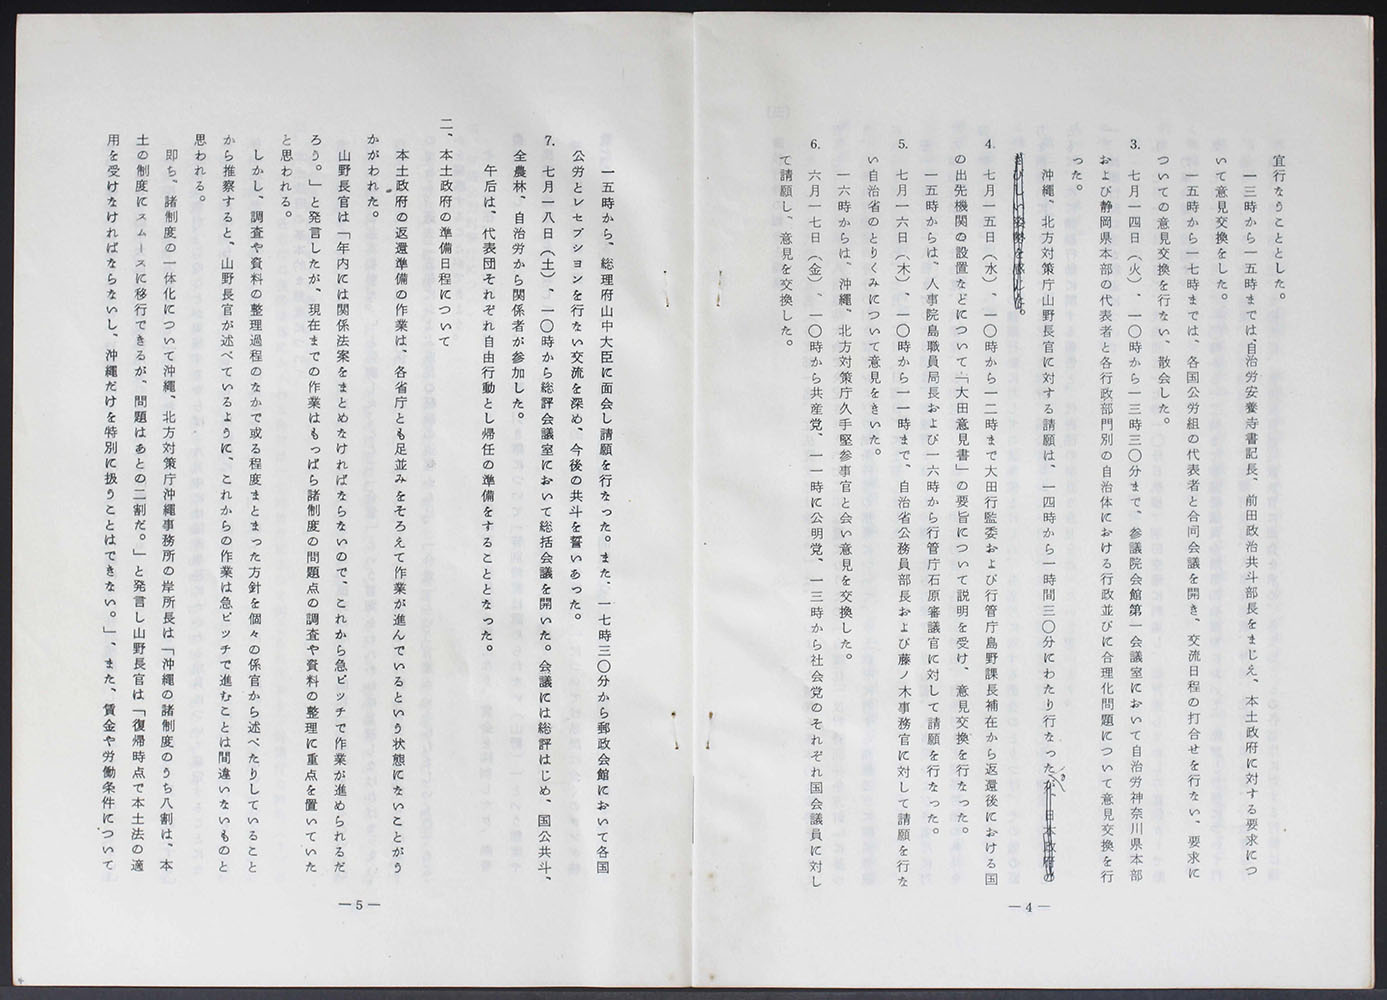 宜行なうこととした。
一三時から一五時までは、自治労安養寺書記長、前田政治共斗部長をまじえ、本土政府に対する要求につ
いて意見交換をした。
一五時から一七時までは、各国公労組の代表者と合同会議を開き、交流日程の打合せを行ない、要求に
ついての意見交換を行ない、散会した。
3. 七月一四日（火）、一〇時から一三時三〇分まで、参議院会館第一会議室において自治労神奈川県本部
および静岡県本部の代表者と各行政部門別の自治体における行政並びに合理化問題について意見交換を行
った。
沖縄、北方対策庁山野長官に対する請願は、一四時から一時間三〇分にわたり行なったが、日本政府の
きびしい姿勢を感じた。
4. 七月一五日（水）、一〇時から一二時まで大田行監委および行管庁島野課長補在から返還後における国
の出先機関の設置などについて「大田意見書」の要旨について説明を受け、意見交換を行なった。
一五時からは、人事院島職員局長および一六時から行管庁石原審議官に対して請願を行なった。
5. 七月一六日（木）、一〇時から一一時まで、自治省公務員部長および藤ノ木事務官に対して請願を行な
い自治省のとりくみについて意見をきいた。
一六時からは、沖縄、北方対策庁久手堅参事官と会い意見を交換した。
6. 六月一七日（金）、一〇時から共産党、一一時に公明党、一三時から社会党のそれぞれ国会議員に対し
て請願し、意見を交換した。
— 4 —
一五時から、総理府山中大臣に面会し請願を行なった。また、一七時三〇分から郵政会館において各国
公労とレセプションを行ない交流を深め、今後の共斗を誓いあった。
7. 七月一八日（土）、一〇時から総評会議室において総括会議を開いた。会議には総評はじめ、国公共斗、
全農林、自治労から関係者が参加した。
午后は、代表団それぞれ自由行動とし帰任の準備をすることとなった。
二、本土政府の準備日程について
本土政府の返還準備の作業は、各省庁とも足並みをそろえて作業が進んでいるという状態にないことがう
かがわれた。
山野長官は「年内には関係法案をまとめなければならないので、これから急ピッチで作業が進められるだ
ろう。」と発言したが、現在までの作業はもっぱら諸制度の問題点の調査や資料の整理に重点を置いていた
と思われる。
しかし、調査や資料の整理過程のなかで或る程度まとまった方針を個々の係官から述べたりしていること
から推察すると、山野長官が述べているように、これからの作業は急ピッチで進むことは間違いないものと
思われる。
即ち、諸制度の一体化について沖縄、北方対策庁沖縄事務所の岸所長は「沖縄の諸制度のうち八割は、本
土の制度にスムースに移行できるが、問題はあとの二割だ。」と発言し山野長官は「復帰時点で本土法の適
用を受けなければならないし、沖縄だけを特別に扱うことはできない。」、また、賃金や労働条件について
— 5 —